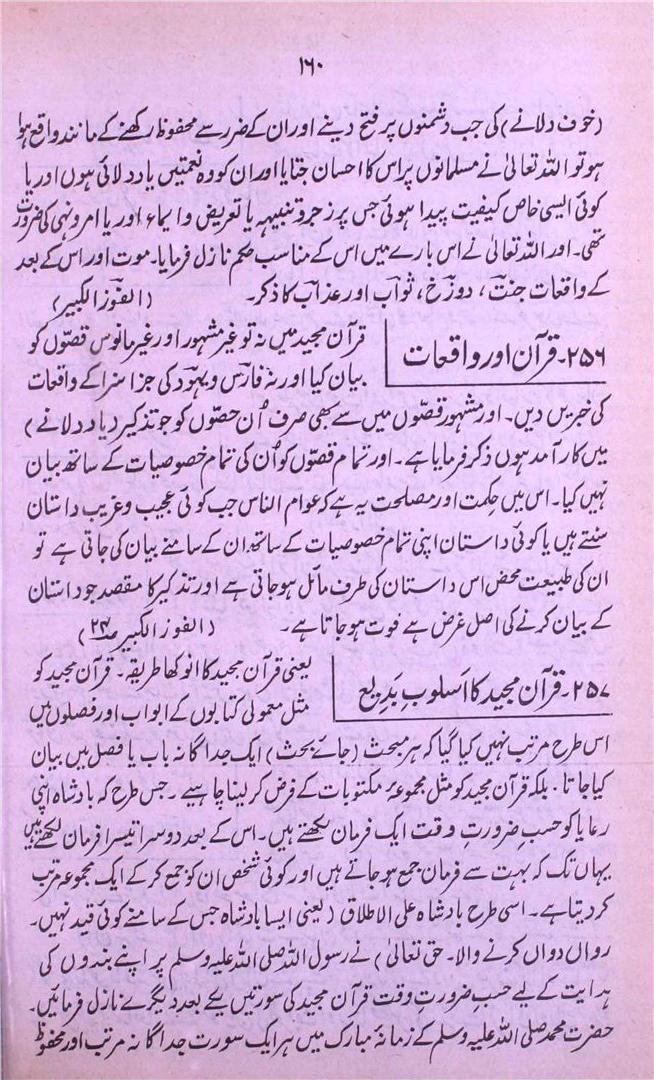 ۱۶۰
(خوف دلانے) کی جب دشمنوں پر فتح دینے اور ان کے ضرر سے محفوظ رکھنے کے مانند واقع ہوا
ہو تو اللہ تعالیٰ نے مسلمانوں پر اس کا احسان جتایا اور ان کو وہ نعمتیں یاد دلائی ہوں اور یا
کوئی ایسی خاص کیفیت پیدا ہوئی جس پر زجر و تنبیہہ یا تعریض و ایماء اور یا امر و نہی کی ضرورت
تھی۔ اور اللہ تعالیٰ نے اس بارے میں اس کے مناسب حکم نازل فرمایا۔ موت اور اس کے بعد
کے واقعات جنت، دوزخ، ثواب اور عذاب کا ذکر۔ (الفوز الکبیر)
۲۵۶۔ قرآن اور واقعات
قرآن مجید میں نہ تو غیر مشہور اور غیر مانوس قصّوں کو
بیان کیا اور نہ فارس و یہود کی جزا سزا کے واقعات
کی خبریں دیں۔ اور مشہور قصّوں میں سے بھی صرف اُن حصّوں کو جو تذکیر (یاد دلانے)
میں کار آمد ہوں ذکر فرمایا ہے۔ اور تمام قصّوں کو اُن کی تمام خصوصیات کے ساتھ بیان
نہیں کیا۔ اس میں حکمت اور مصلحت یہ ہے کہ عوام الناس جب کوئی عجیب و غریب داستان
سنتے ہیں یا کوئی داستان اپنی تمام خصوصیات کے ساتھ ان کے سامنے بیان کی جاتی ہے تو
ان کی طبیعت محض اس داستان کی طرف مائل ہو جاتی ہے اور تذکیر کا مقصد جو داستان
کے بیان کرنے کی اصل غرض ہے فوت ہو جاتا ہے۔ (الفوز الکبیر صـ۲۴)
۲۵۷۔ قرآن مجید کا اَسلوبِ بَدِیع
یعنی قرآن مجید کا انوکھا طریقہ۔ قرآن مجید کو
مثل معمولی کتابوں کے ابواب اور فصلوں میں
اس طرح مرتب نہیں کیا گیا کہ ہر مبحث (جائے بحث) ایک جداگانہ باب یا فصل میں بیان
کیا جاتا۔ بلکہ قرآن مجید کو مثل مجموعۂ مکتوبات کے فرض کر لینا چاہیے۔ جس طرح کہ بادشاہ اپنی
رعایا کو حسبِ ضرورتِ وقت ایک فرمان لکھتے ہیں۔ اس کے بعد دوسرا تیسرا فرمان لکھتے ہیں
یہاں تک کہ بہت سے فرمان جمع ہو جاتے ہیں اور کوئی شخص ان کو جمع کر کے ایک مجموعہ مرتب
کر دیتا ہے۔ اسی طرح بادشاہ علی الاطلاق (یعنی ایسا بادشاہ جس کے سامنے کوئی قید نہیں۔
رواں دواں کرنے والا۔ حق تعالیٰ) نے رسول اللہ صلی اللہ علیہ وسلم پر اپنے بندوں کی
ہدایت کے لیے حسبِ ضرورتِ وقت قرآن مجید کی سورتیں یکے بعد دیگرے نازل فرمائیں۔
حضرت محمد صلی اللہ علیہ وسلم کے زمانۂ مبارک میں ہر ایک سورت جداگانہ مرتب اور محفوظ